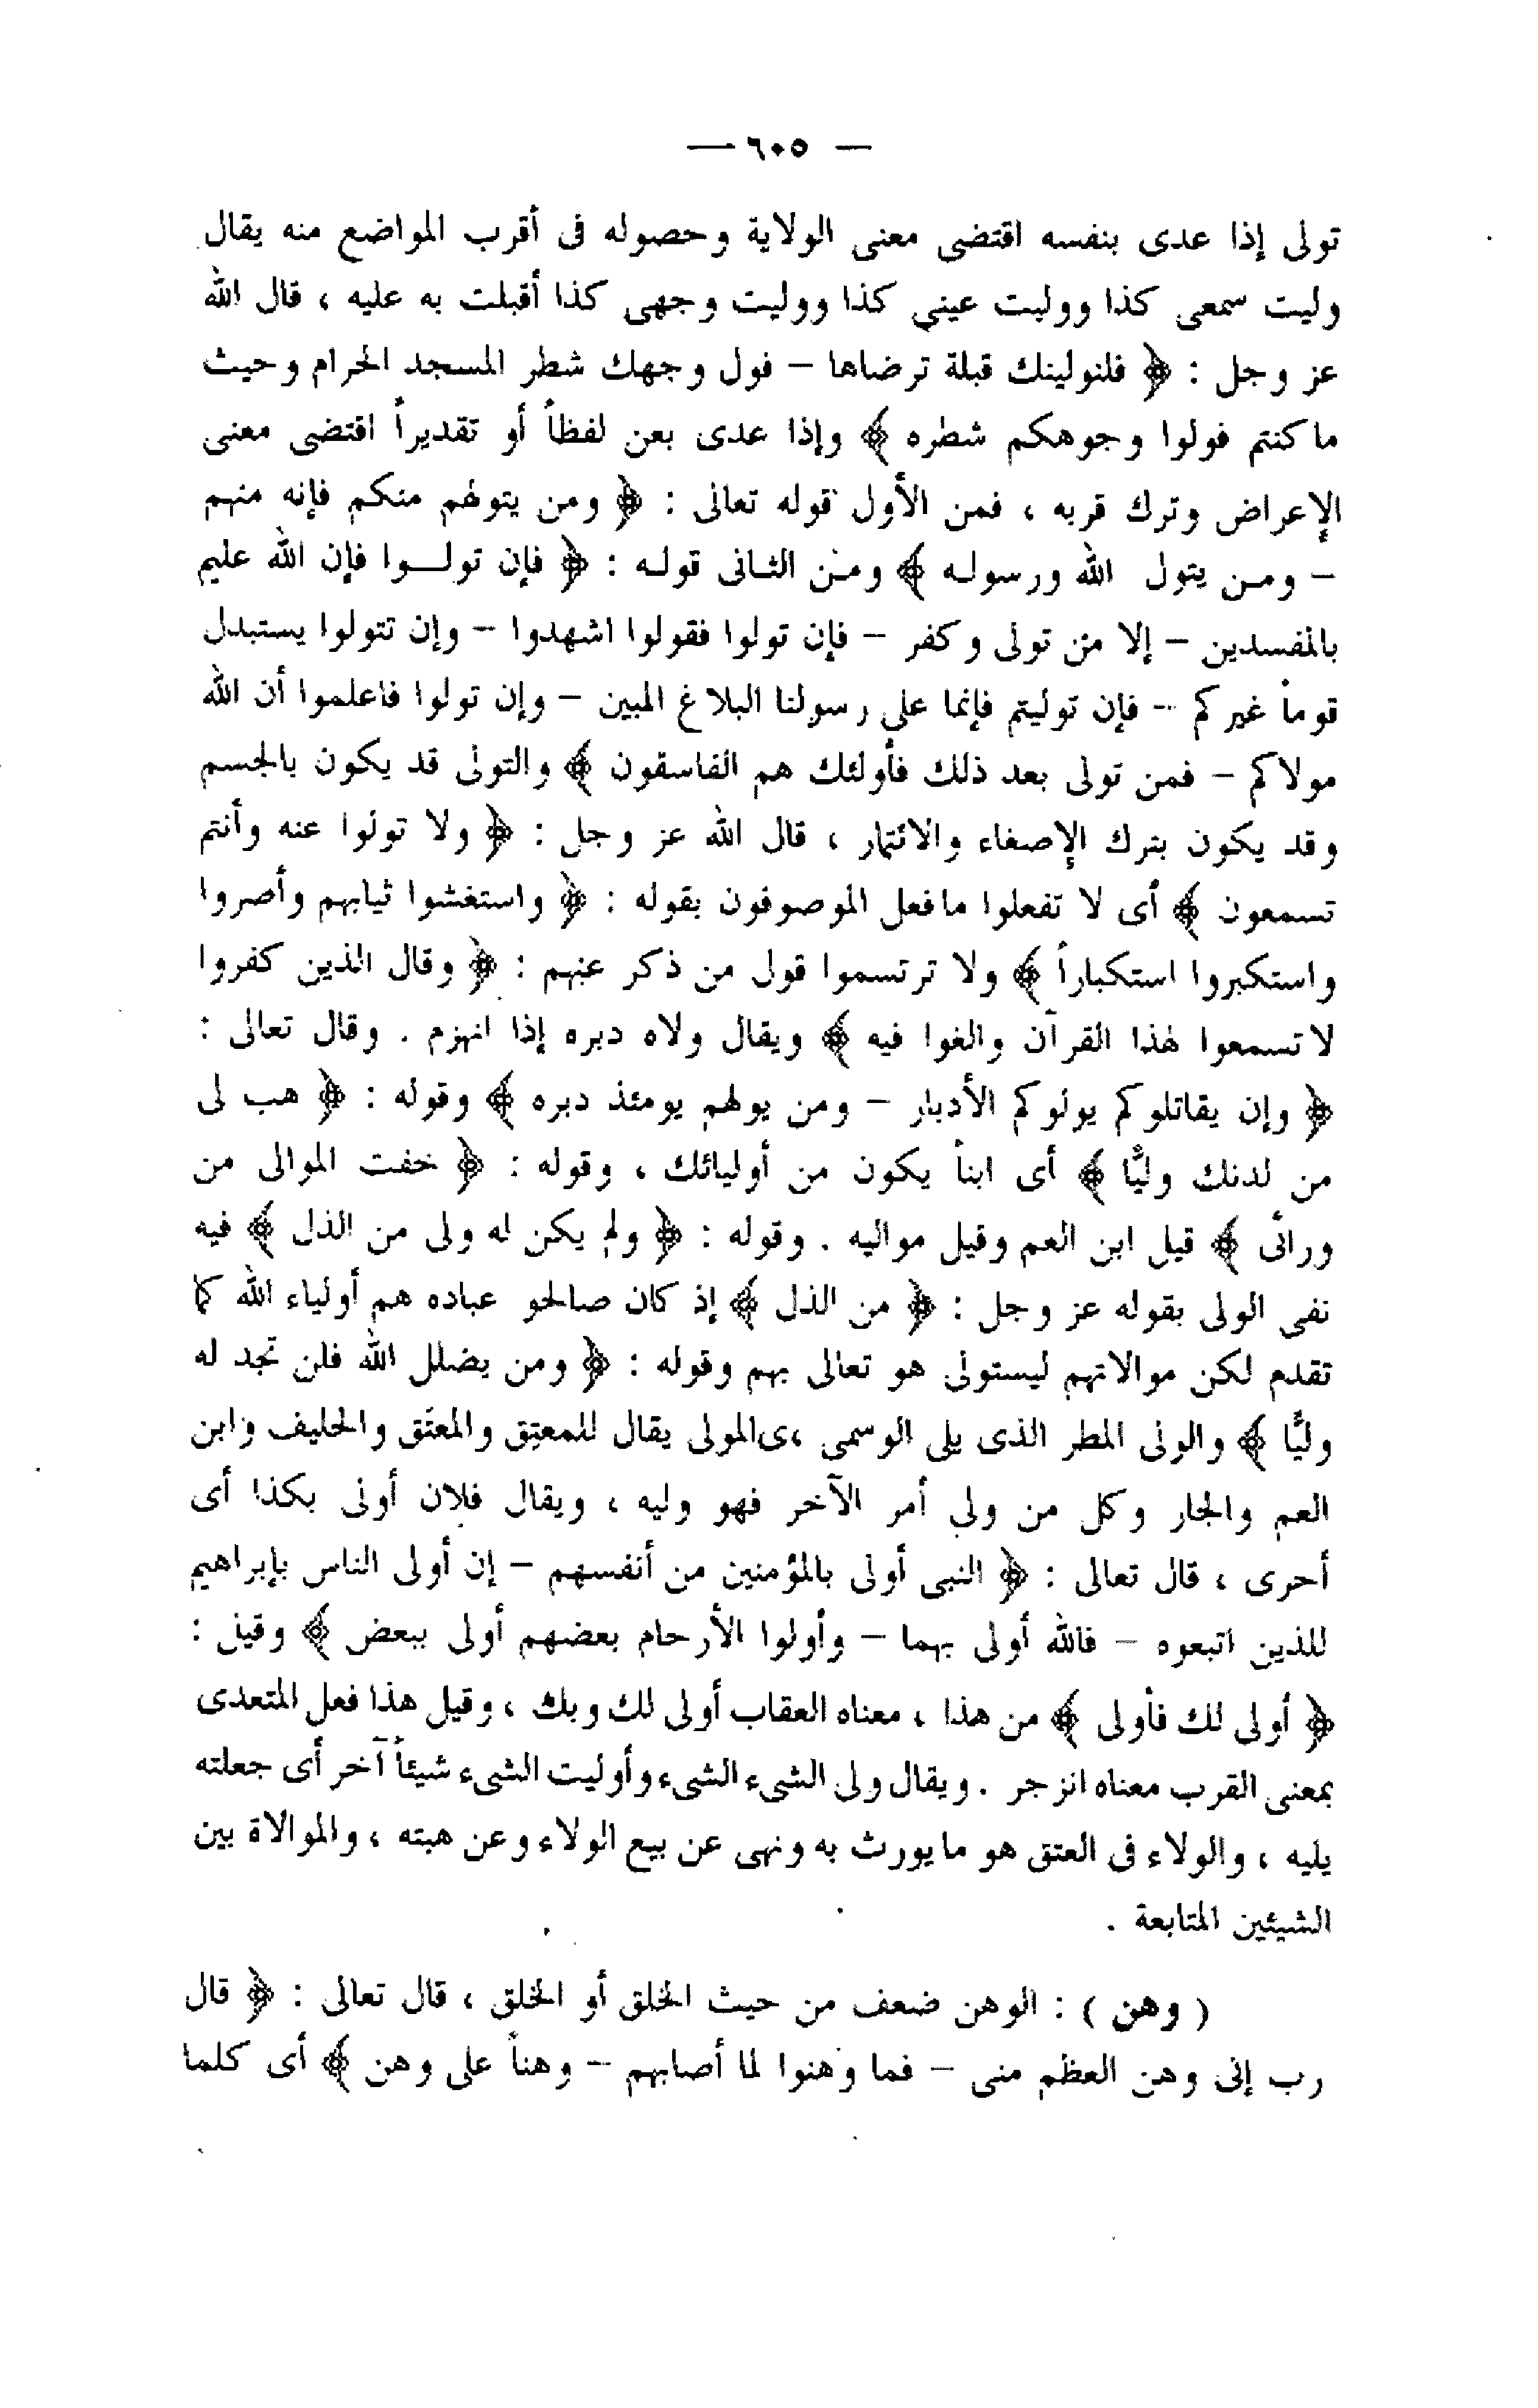 — ٦٠٥ —
تولى إذا عدى بنفسه اقتضى معنى الولاية وحصوله فى أقرب المواضع منه يقال
وليت سمعى كذا ووليت عيني كذا ووليت وجهى كذا أقبلت به عليه ، قال الله
عز وجل : ﴿ فلنولينك قبلة ترضاها – فول وجهك شطر المسجد الحرام وحيث
ما كنتم فولوا وجوهكم شطره ﴾ وإذا عدى بعن لفظاً أو تقديراً اقتضى معنى
الإعراض وترك قربه ، فمن الأول قوله تعالى : ﴿ ومن يتولهم منكم فإنه منهم
– ومن يتول الله ورسوله ﴾ ومن الثانى قوله : ﴿ فإن تولوا فإن الله عليم
بالمفسدين – إلا من تولى وكفر – فإن تولوا فقولوا اشهدوا – وإن تتولوا يستبدل
قوماً غيركم – فإن توليتم فإنما على رسولنا البلاغ المبين – وإن تولوا فاعلموا أن الله
مولاكم – فمن تولى بعد ذلك فأولئك هم الفاسقون ﴾ والتولى قد يكون بالجسم
وقد يكون بترك الإصغاء والائتمار ، قال الله عز وجل : ﴿ ولا تولوا عنه وأنتم
تسمعون ﴾ أى لا تفعلوا ما فعل الموصوفون بقوله : ﴿ واستغشوا ثيابهم وأصروا
واستكبروا استكباراً ﴾ ولا ترتسموا قول من ذكر عنهم : ﴿ وقال الذين كفروا
لا تسمعوا لهذا القرآن والغوا فيه ﴾ ويقال ولاه دبره إذا انهزم . وقال تعالى :
﴿ وإن يقاتلوكم يولوكم الأدبار – ومن يولهم يومئذ دبره ﴾ وقوله : ﴿ هب لى
من لدنك وليًّا ﴾ أى ابناً يكون من أوليائك ، وقوله : ﴿ خفت الموالى من
ورائى ﴾ قيل ابن العم وقيل مواليه . وقوله : ﴿ ولم يكن له ولى من الذل ﴾ فيه
نفى الولى بقوله عز وجل : ﴿ من الذل ﴾ إذ كان صالحو عباده هم أولياء الله كما
تقدم لكن موالاتهم ليستولى هو تعالى بهم وقوله : ﴿ ومن يضلل الله فلن تجد له
وليًّا ﴾ والولى المطر الذى يلى الوسمى ،ىالمولى يقال للمعتِق والمعتَق والحليف وابن
العم والجار وكل من ولى أمر الآخر فهو وليه ، ويقال فلان أولى بكذا أى
أحرى ، قال تعالى : ﴿ النبى أولى بالمؤمنين من أنفسهم – إن أولى الناس بإبراهيم
للذين اتبعوه – فالله أولى بهما – وأولوا الأرحام بعضهم أولى ببعض ﴾ وقيل :
﴿ أولى لك فأولى ﴾ من هذا ، معناه العقاب أولى لك وبك ، وقيل هذا فعل المتعدى
بمعنى القرب معناه انزجر . ويقال ولى الشىء الشىء وأوليت الشىء شيئاً آخر أى جعلته
يليه ، والولاء فى العتق هو ما يورث به ونهى عن بيع الولاء وعن هبته ، والموالاة بين
الشيئين المتابعة .
( وهن ) : الوهن ضعف من حيث الخلق أو الخلق ، قال تعالى : ﴿ قال
رب إنى وهن العظم منى – فما وهنوا لما أصابهم – وهناً على وهن ﴾ أى كلما